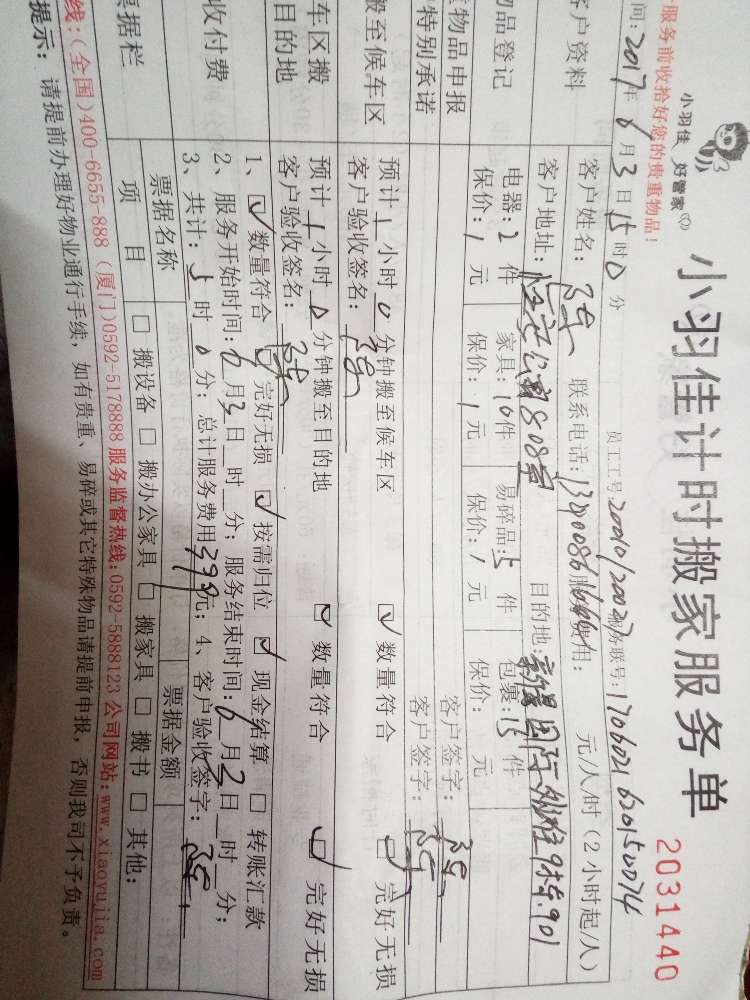 小羽佳 好管家
小羽佳计时搬家服务单
2031440
服务前收拾好您的贵重物品!
间:2017年6月3日15时0分
客户资料
客户姓名: 联系电话: 服务费用: 元/人/时(2小时起/人)
客户地址: 恒安公寓808室 目的地:
物品登记
电器:2件 家具:10件 易碎品:5件 包裹:15件
保价:1元 保价:1元 保价:1元 保价: 元
物品申报 客户签字:
特别承诺 客户签字:
搬至候车区
预计1小时0分钟搬至候车区 ☑数量符合 ☑完好无损
客户验收签名:
车区搬
目的地
预计1小时0分钟搬至目的地 ☑数量符合 ☑完好无损
客户验收签名:
收付费
1、☑数量符合 ☑完好无损 ☑按需归位 ☑现金结算 □转账汇款
2、服务开始时间:6月3日 时 分;服务结束时间:6月3日 时 分;
3、共计:5时0分;总计服务费用399元;4、客户验收签字:
票据栏
票据名称 票据金额
项目 □搬设备 □搬办公家具 □搬家具 □搬书 □其他:
线:(全国)400-6655-888 (厦门)0592-5178888 服务监督热线:0592-5888123 公司网站:www.xiaoyujia.com
提示: 请提前办理好物业通行手续,如有贵重、易碎或其它特殊物品请提前申报,否则我司不予负责。